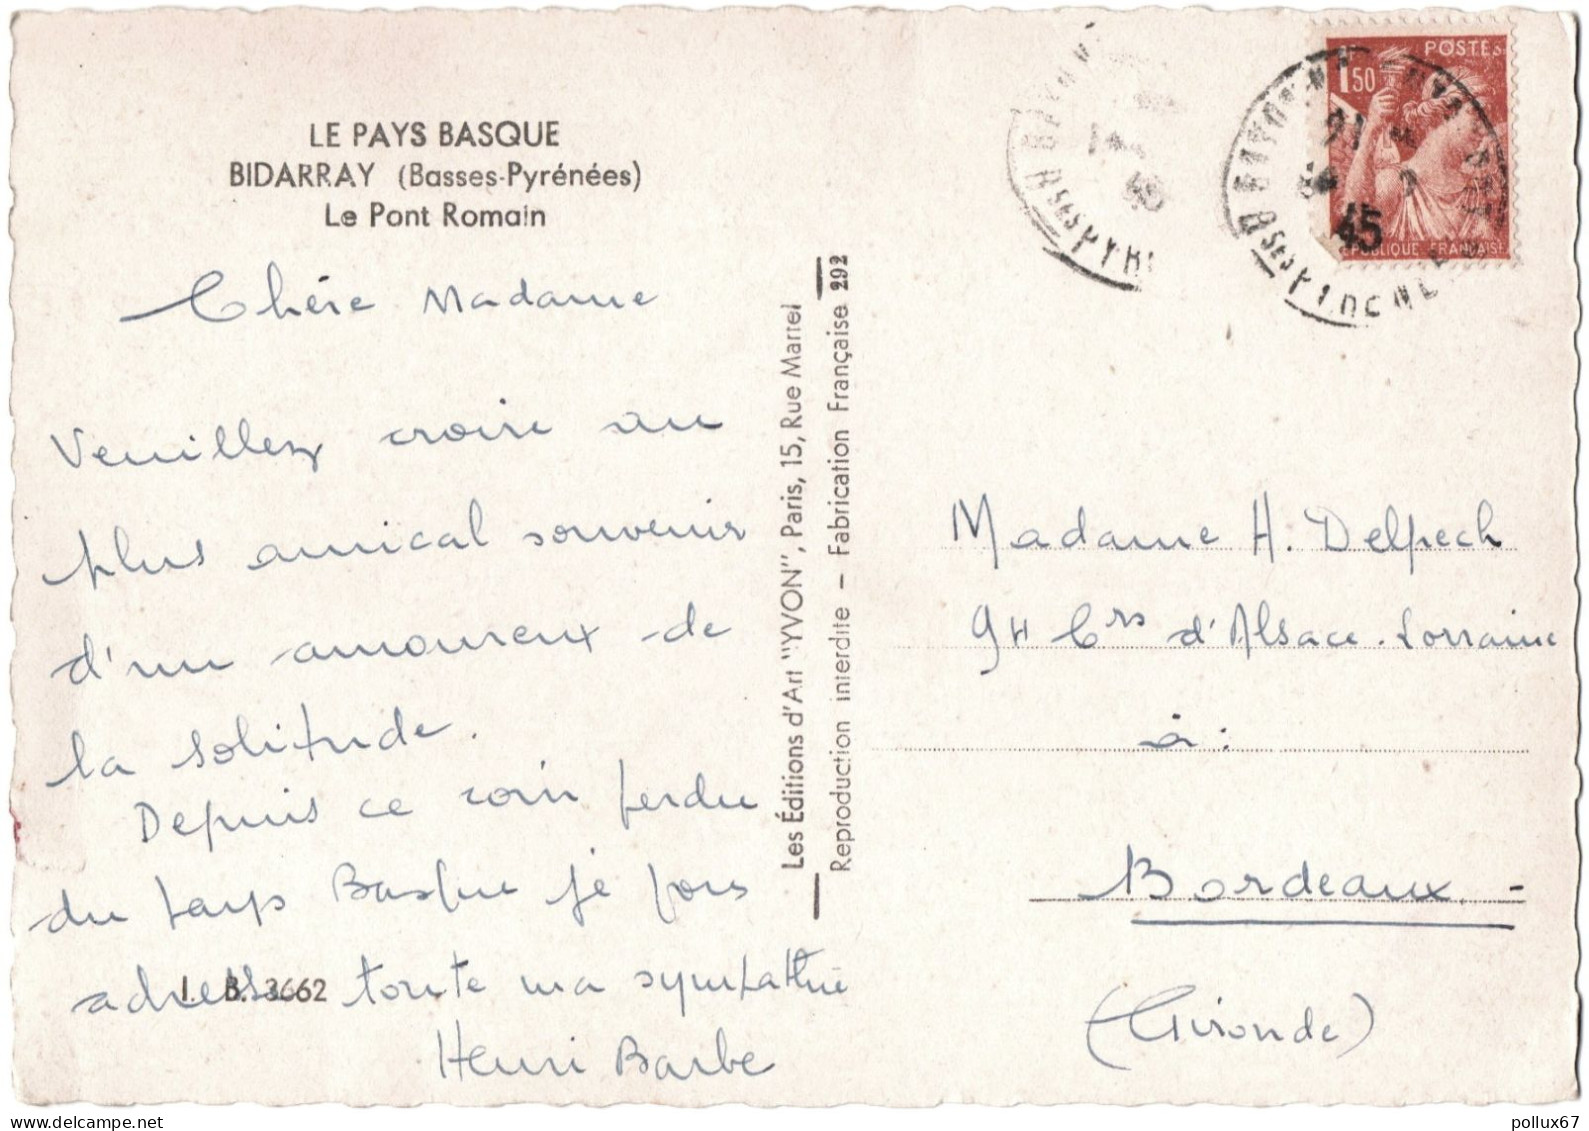 LE PAYS BASQUE
BIDARRAY (Basses-Pyrénées)
Le Pont Romain
Chére Madame
Veuillez croire au
plus amical souvenir
d'un amoureux de
la solitude.
Depuis ce coin perdu
du pays Basque je vous
adresse toute ma sympathie
I. B. 3662
Henri Barbe
Les Éditions d'Art "YVON", Paris, 15, Rue Martel
Reproduction interdite – Fabrication Française 292
POSTES
1,50
RÉPUBLIQUE FRANÇAISE
BAYONNE
Bses PYR
16
45
Madame H. Delpech
94 Crs d'Alsace-Lorraine
à:
Bordeaux -
(Gironde)
pollux67